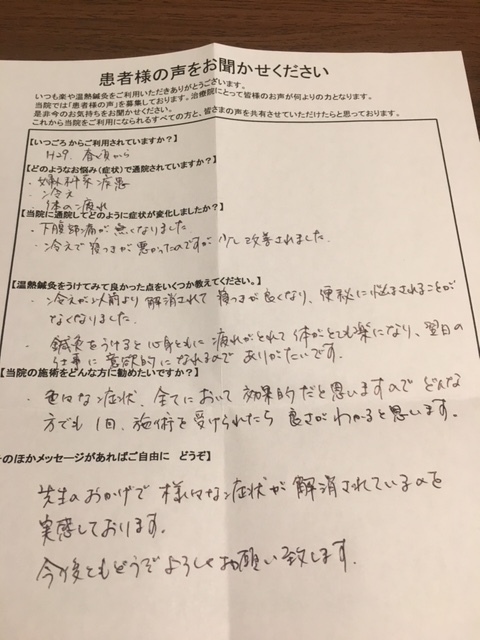 患者様の声をお聞かせください
いつも楽や温熱鍼灸をご利用いただきありがとうございます。
当院では「患者様の声」を募集しております。治療院にとって皆様のお声が何よりの力となります。
是非今のお気持ちをお聞かせください。
これから当院をご利用になられるすべての方と、皆さまの声を共有させていただけたらと思っております。
【いつごろからご利用されていますか?】
H29. 春頃から
【どのようなお悩み(症状)で通院されていますか?】
・婦人科系疾患
・冷え
・体の疲れ
【当院に通院してどのように症状が変化しましたか?】
・下腹部痛が無くなりました
・冷えで寝つきが悪かったのですが少し改善されました.
【温熱鍼灸をうけてみて良かった点をいくつか教えてください。】
・冷えが以前より解消されて寝つきが良くなり、便秘に悩まされることが
なくなりました.
・鍼灸をうけると心身ともに疲れがとれて体がとても楽になり、翌日の
仕事に意欲的になれるのでありがたいです。
【当院の施術をどんな方に勧めたいですか?】
・色々な症状、全てにおいて効果的だと思いますのでどんな
方でも1回、施術を受けられたら良さがわかると思います。
のほかメッセージがあればご自由に どうぞ】
先生のおかげで様々な症状が解消されているのを
実感しております。
今後ともどうぞよろしくお願い致します.